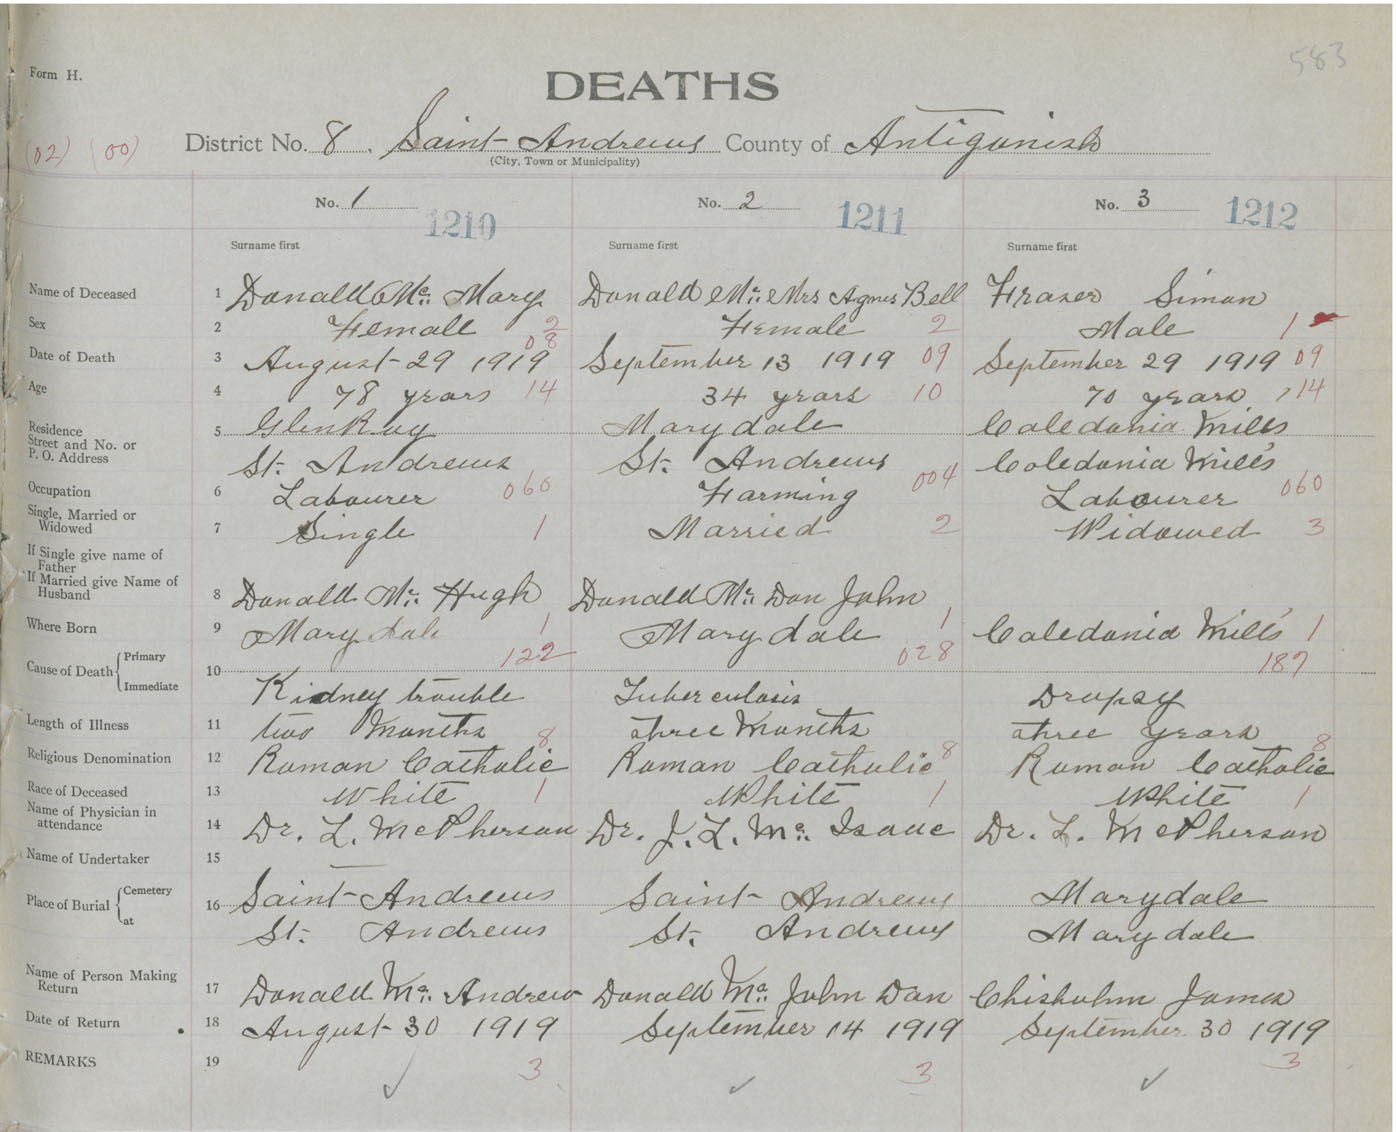 583
Form H.
DEATHS
(02) (00) District No. 8. Saint Andrews County of Antigonish
(City, Town or Municipality)
No. 1 1210 No. 2 1211 No. 3 1212
Surname first Surname first Surname first
Name of Deceased 1 Donald Mc. Mary Donald Mc. Mrs Agnes Bell Fraser Simon
Sex 2 Female 2 Female 2 Male 1
Date of Death 3 August 29 1919 08 September 13 1919 09 September 29 1919 09
Age 4 78 years 14 34 years 10 70 years 14
Residence 5 GlenRoy Marydale Caledonia Mills
Street and No. or
P. O. Address St. Andrews St. Andrews Caledonia Mills
Occupation 6 Labourer 060 Farming 004 Labourer 060
Single, Married or
Widowed 7 Single 1 Married 2 Widowed 3
If Single give name of
Father
If Married give Name of
Husband 8 Donald Mc. Hugh Donald Mc. Dan John
Where Born 9 Marydale 1 Marydale 1 Caledonia Mills 1
Cause of Death Primary 122 028 187
Immediate 10 Kidney trouble Tuberculosis Dropsy
Length of Illness 11 two Months three Months three years
Religious Denomination 12 Roman Catholic 8 Roman Catholic 8 Roman Catholic 8
Race of Deceased 13 White 1 White 1 White 1
Name of Physician in
attendance 14 Dr. L. McPherson Dr. J. L. Mc. Isaac Dr. L. McPherson
Name of Undertaker 15
Place of Burial Cemetery 16 Saint Andrews Saint Andrews Marydale
at St. Andrews St. Andrews Marydale
Name of Person Making
Return 17 Donald Mc. Andrew Donald Mc. John Dan Chisholm James
Date of Return 18 August 30 1919 September 14 1919 September 30 1919
REMARKS 19 3 3 3